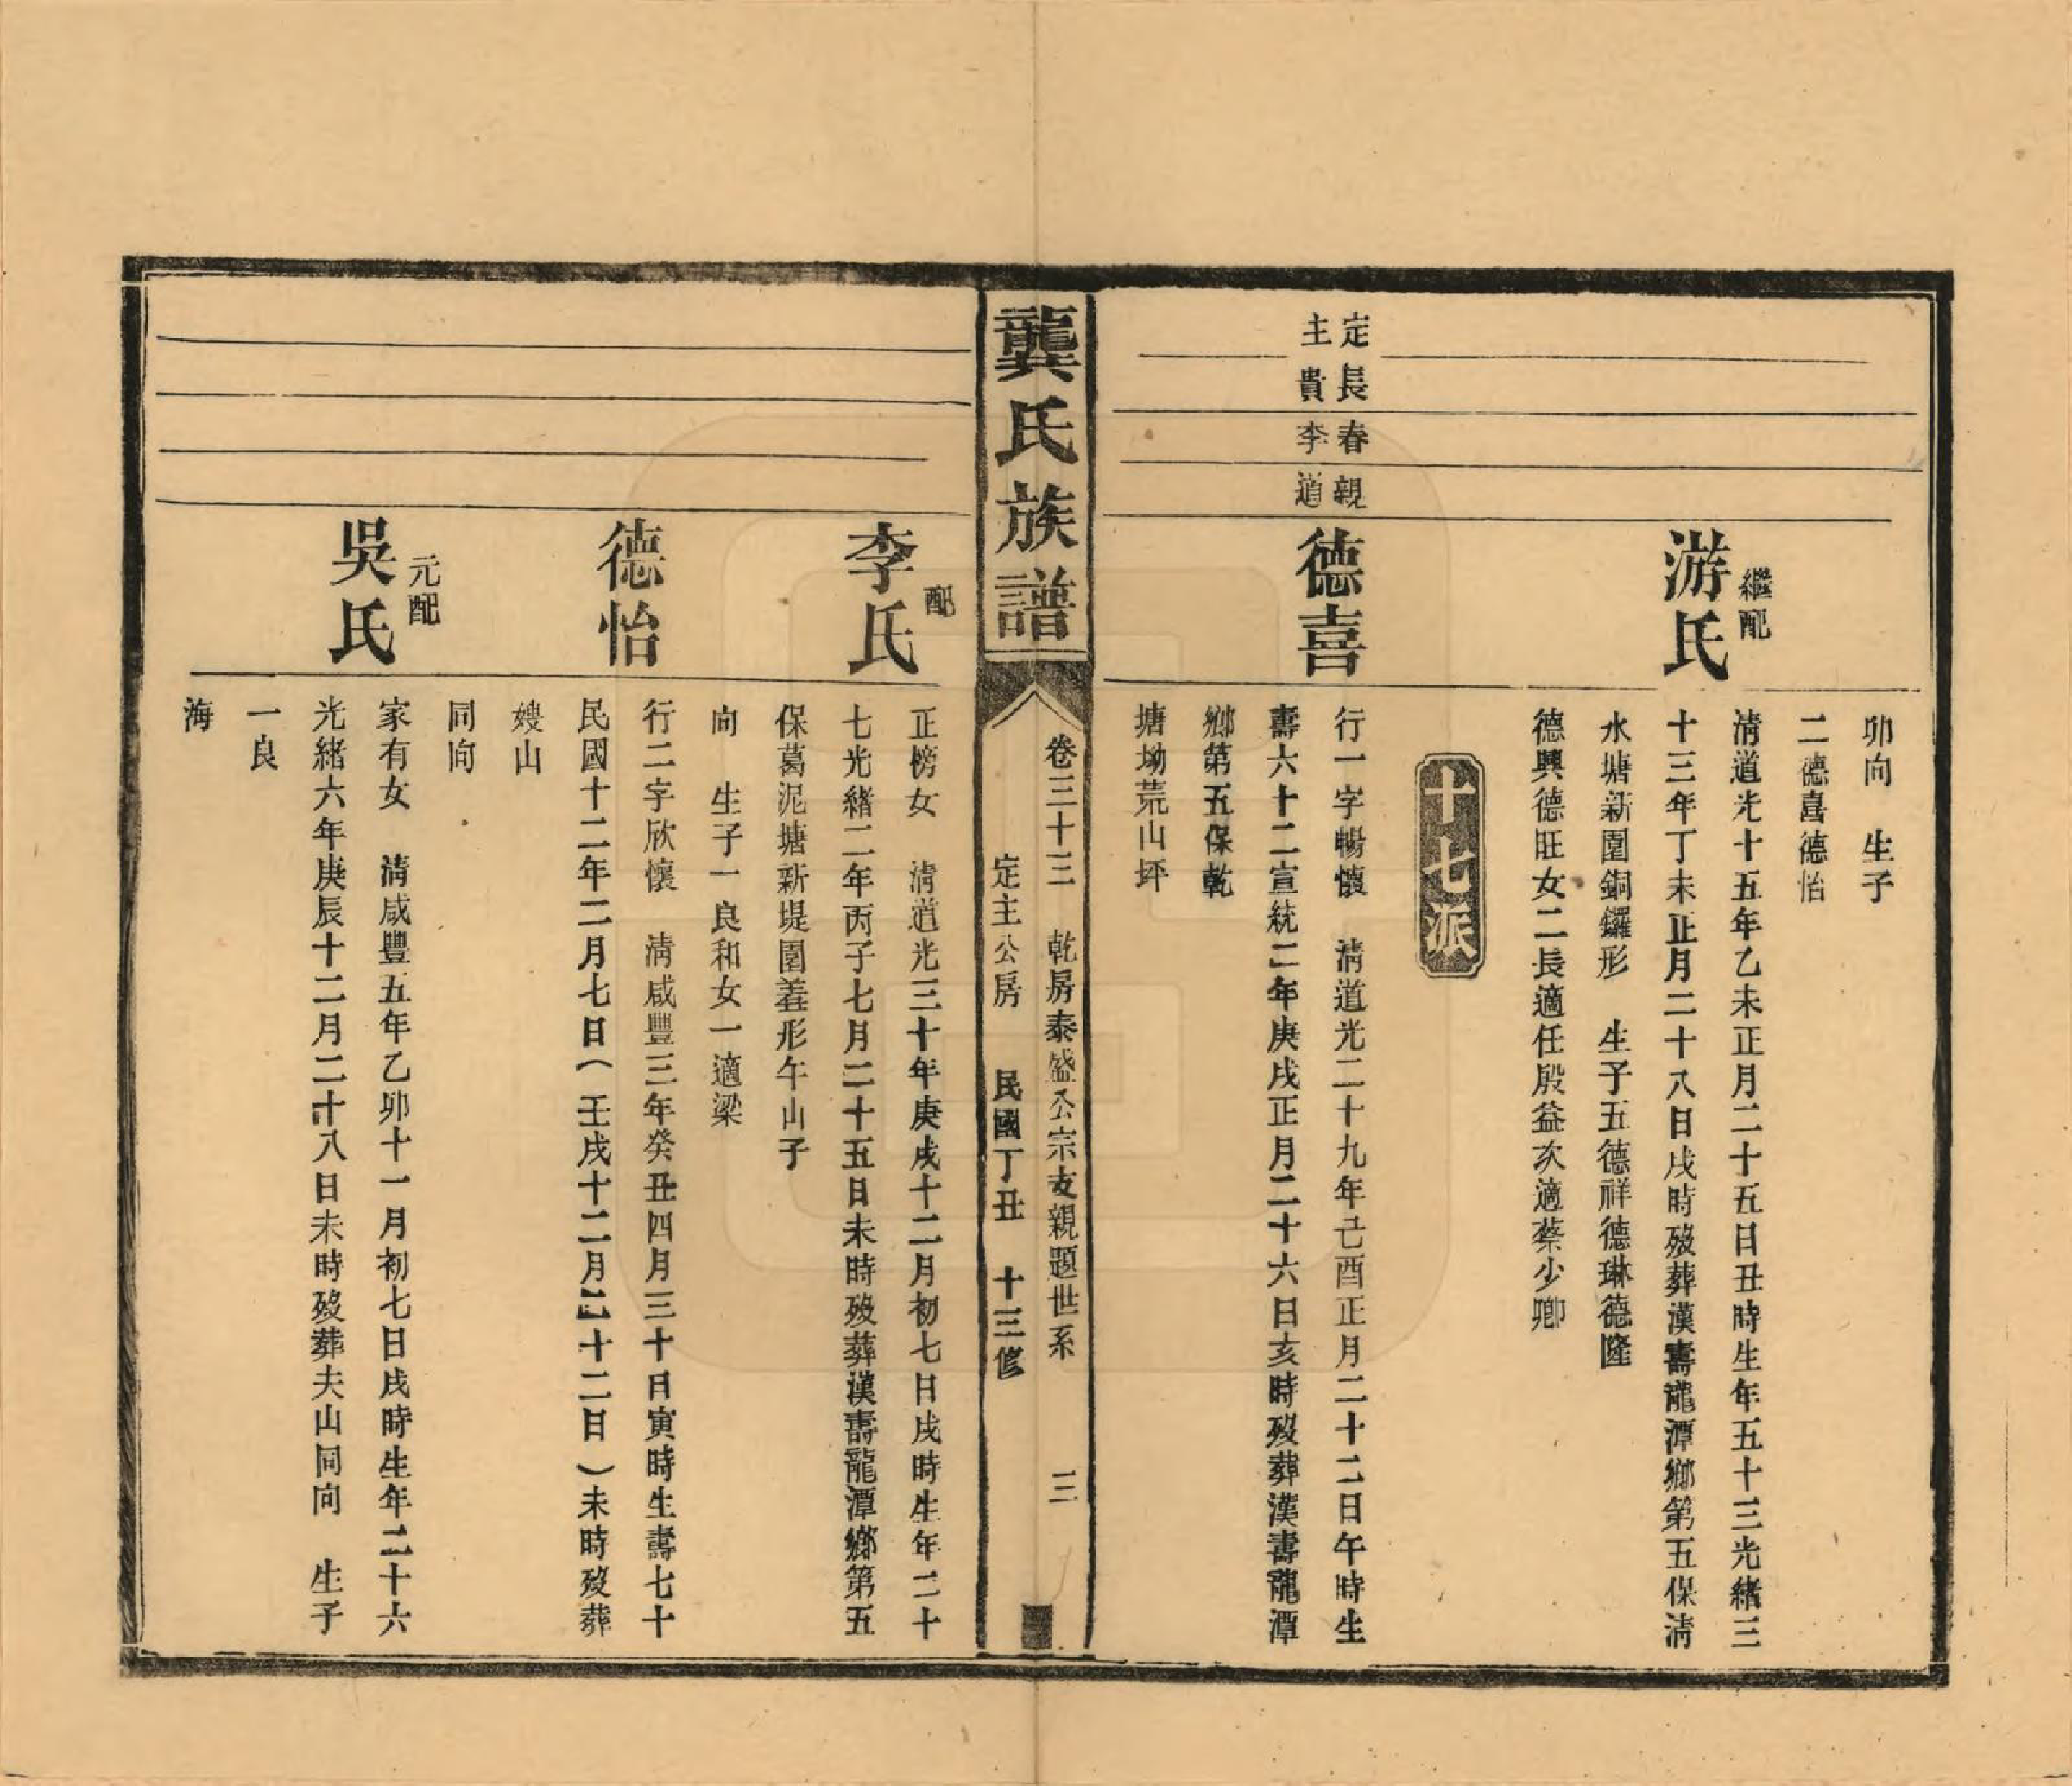 卯向　生子
二德喜德怡
繼配
游氏
清道光十五年乙未正月二十五日丑時生年五十三光緒三
十三年丁未正月二十八日戌時歿葬漢壽龍潭鄉第五保清
水塘新圍銅鑼形　生子五德祥德琳德隆
德興德旺女二長適任殷益次適蔡少卿
十七派
定長春親
主貴李道
德喜
行一字暢懷　清道光二十九年己酉正月二十二日午時生
壽六十二宣統二年庚戌正月二十六日亥時歿葬漢壽龍潭
鄉第五保乾
塘坳荒山坪
龔氏族譜
卷三十三　乾房泰盛公宗支親題世系　三
定主公房　民國丁丑　十三修
配
李氏
正榜女　清道光三十年庚戌十二月初七日戌時生年二十
七光緒二年丙子七月二十五日未時歿葬漢壽龍潭鄉第五
保葛泥塘新堤圍羞形午山子
向　生子一良和女一適梁
德怡
行二字欣懷　清咸豐三年癸丑四月三十日寅時生壽七十
民國十二年二月七日（壬戌十二月二十二日）未時歿葬
嫂山
同向
元配
吳氏
家有女　清咸豐五年乙卯十一月初七日戌時生年二十六
光緒六年庚辰十二月二十八日未時歿葬夫山同向　生子
一良
海